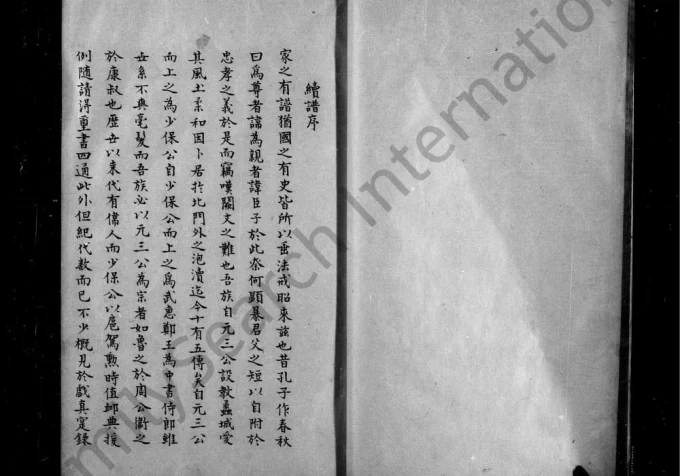 續譜序
家之有譜猶國之有史皆所以垂法戒昭來兹也昔孔子作春秋
曰爲尊者諱為親者諱臣子於此奈何顯暴君父之短以自附於
忠孝之義於是而竊嘆闕文之難也吾族自元三公設教蠡城愛
其風土柔和因卜居於北門外之泡瀆迄今十有五傳矣自元三公
而上之為少保公自少保公而上之爲武惠鄭王為中書侍郎雖
世系不爽毫髮而吾族必以元三公為宗者如魯之於周公衞之
於康叔也歷世以來代有偉人而少保公以扈駕勲時值卹典援
例隨請得重書四通此外但紀代数而已不少概見於戲真寔錄
FamilySearch International